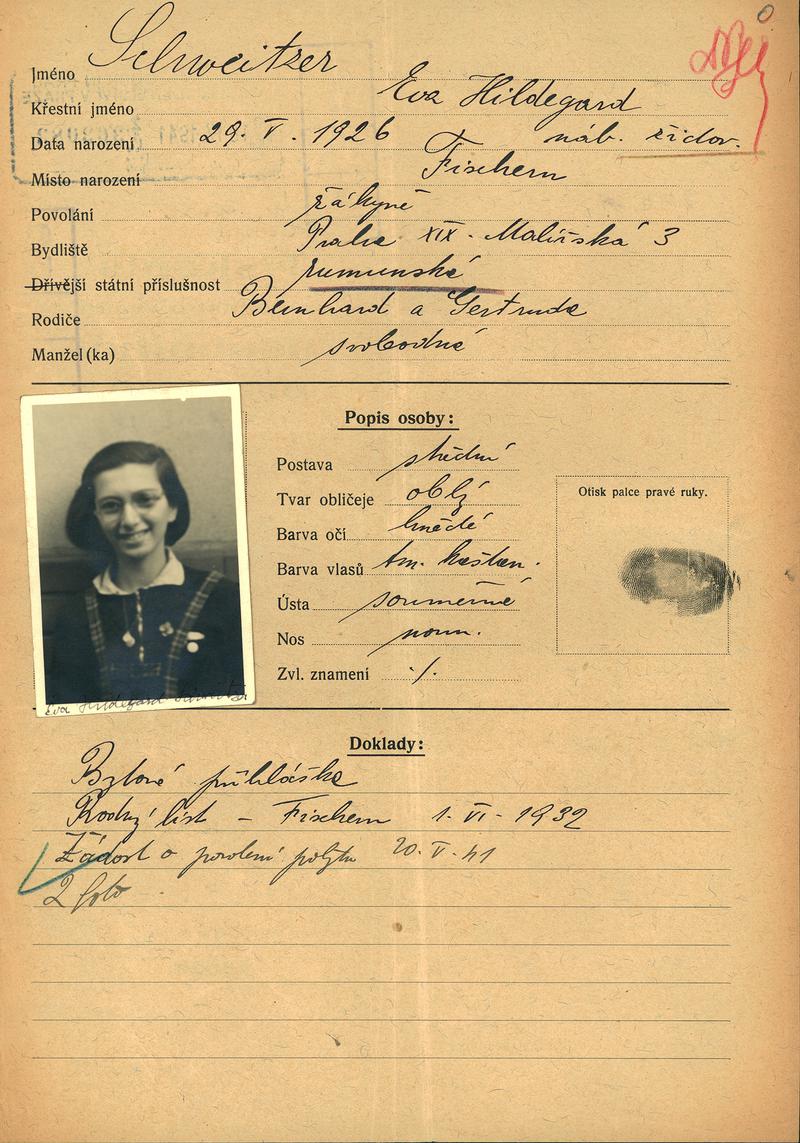 Jméno Schweitzer
Křestní jméno Eva Hildegard
Data narození 29. V. 1926 náb. židov.
Místo narození Fischern
Povolání žákyně
Bydliště Praha XIX - Malířská 3
Dřívější státní příslušnost rumunská
Rodiče Bernhard a Gertruda
Manžel (ka) svobodná
Popis osoby:
Postava střední
Tvar obličeje oblý
Barva očí hnědé
Barva vlasů tm. kaštan.
Ústa souměrné
Nos norm.
Zvl. znamení ./.
Otisk palce pravé ruky.
Eva Hildegard Schweitzer
Doklady:
Bytová přihláška
Rodný list - Fischern 1. VI. 1932
Žádost o povolení pobytu 20. V. 41
2 foto